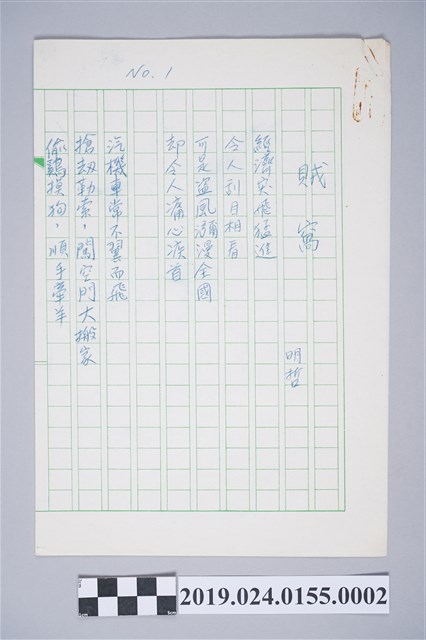 No. 1
賊窩
明哲
經濟突飛猛進
令人刮目相看
可是盜風瀰漫全國
却令人痛心疾首
汽機車常不翼而飛
搶劫勒索，闖空門大搬家
偷鷄摸狗，順手牽羊
2019.024.0155.0002